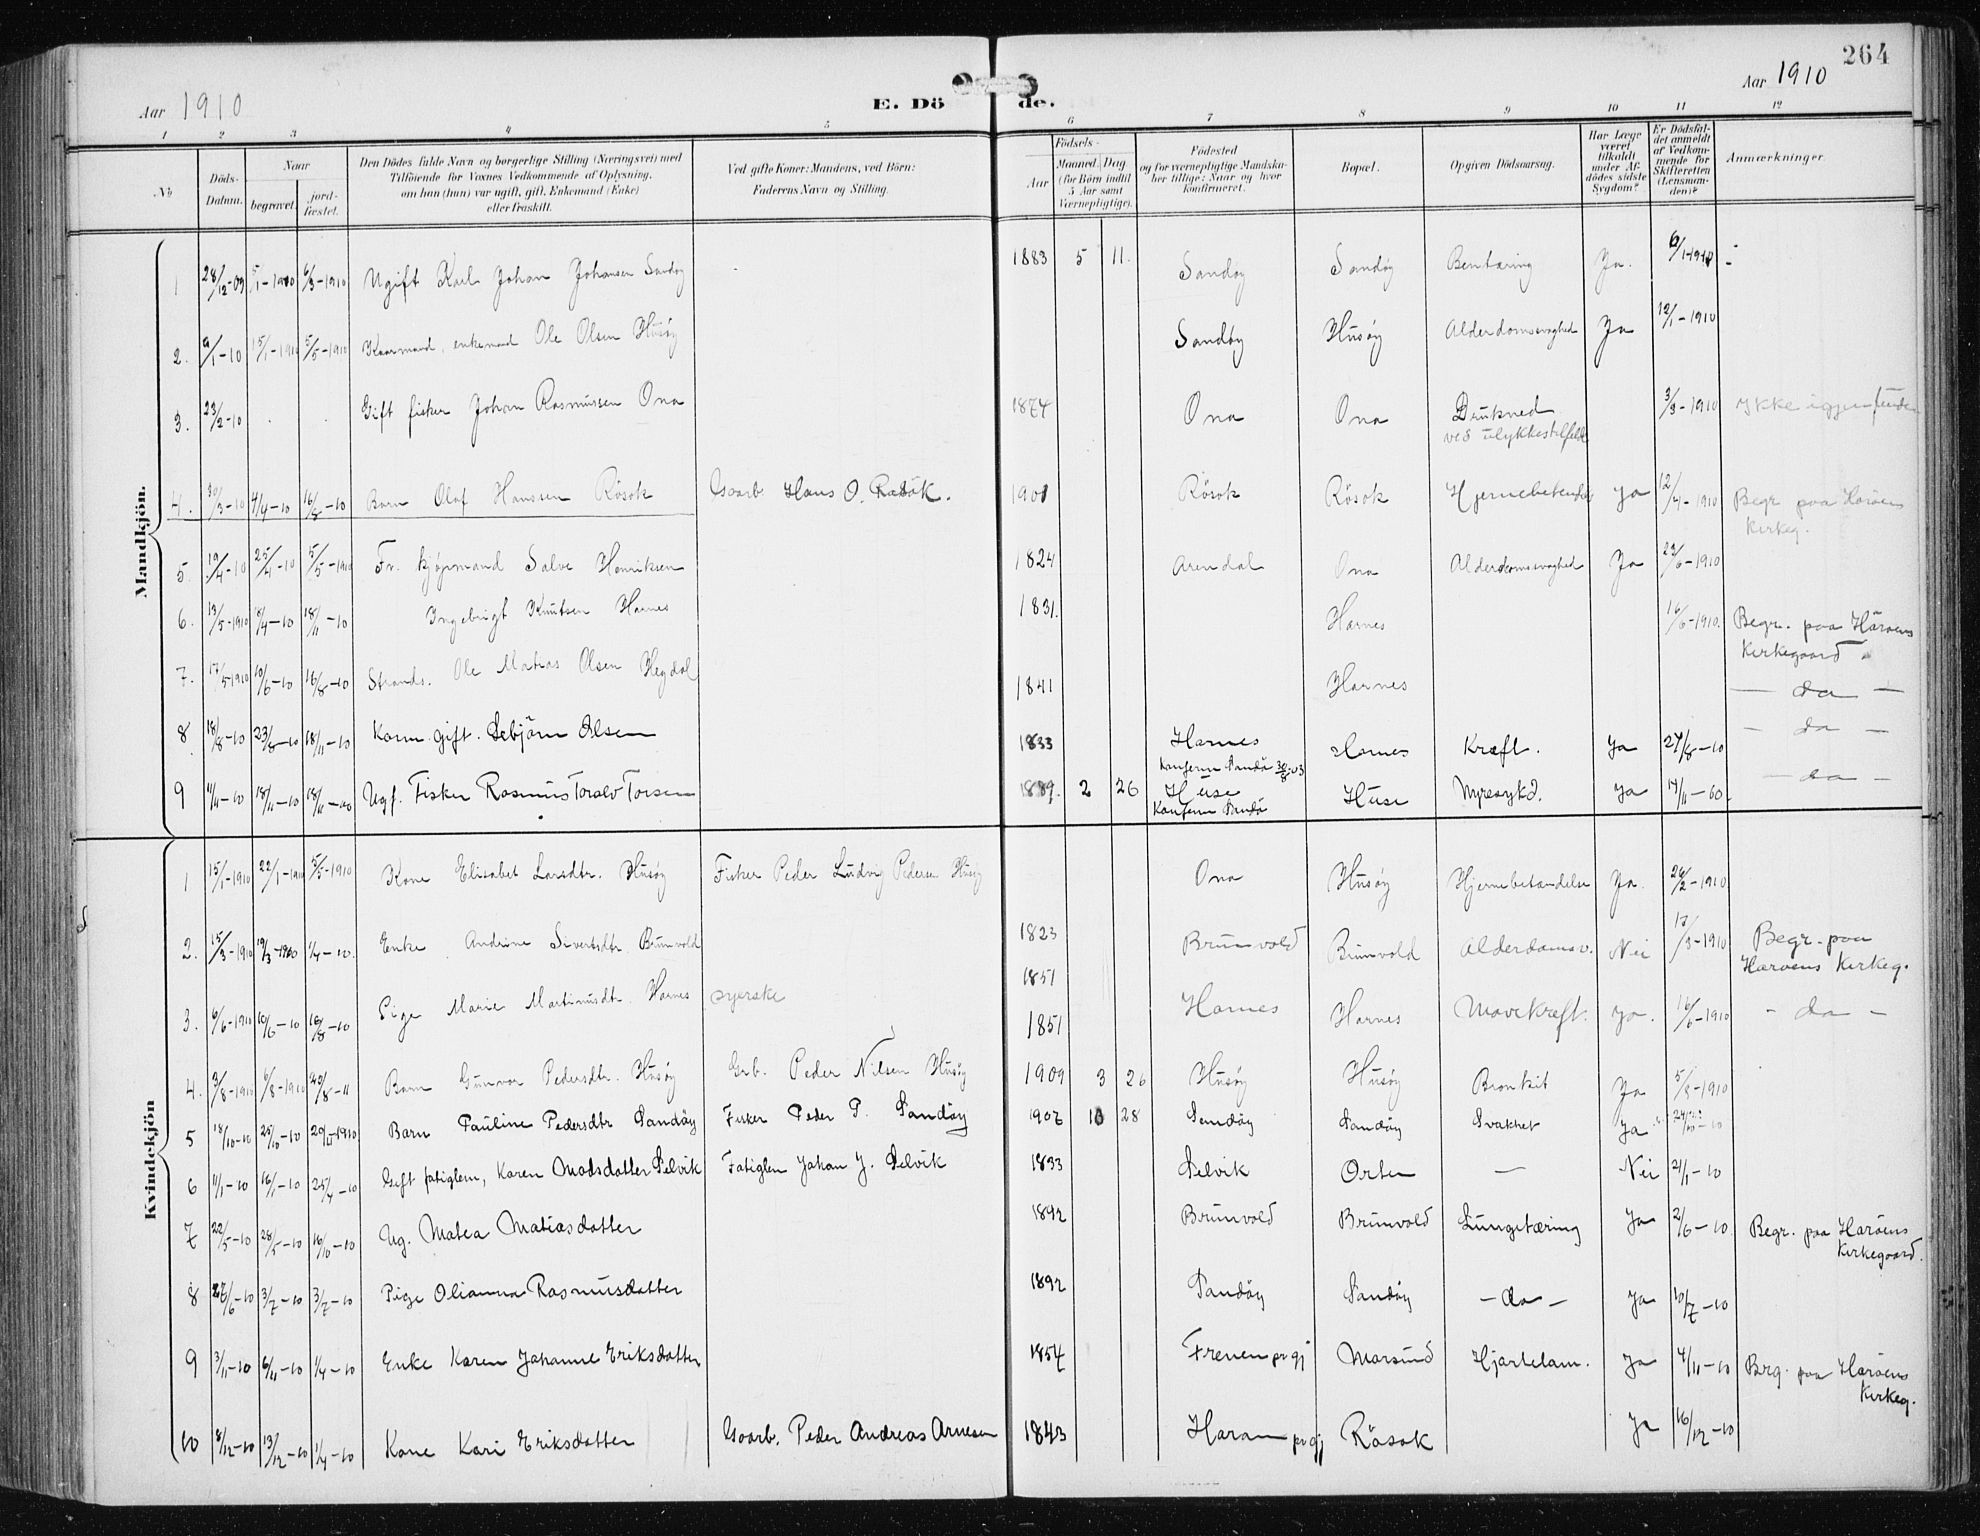 264
Aar 1910
Aar 1910
E. Dö de.
1 2 3 4 5 6 7 8 9 10 11 12
No
Döds-Datum.
Naar begravet. jord-fæstet.
Den Dödes fulde Navn og borgerlige Stilling (Næringsvei) med Tilföiende for Voxnes Vedkommende af Oplysning, om han (hun) var ugift, gift, Enkemand (Enke) eller fraskilt.
Ved gifte Koner: Mandens, ved Börn: Faderens Navn og Stilling.
Födsels- Aar Maaned. Dag (for Börn indtil 5 Aar samt Værnepligtige).
Födested og for værnepligtige Mandskaber tillige: Naar og hvor konfirmeret.
Bopæl.
Opgiven Dödsaarsag.
Har Læge været tilkaldt under Afdödes sidste Sygdom?
Er Dödsfaldet anmeldt af Vedkommende for Skifteretten (Lensmanden)?
Anmærkninger.
Mandkjön.
1 28/12-09 5/1-1910 6/3-1910 Ugift Karl Johan Johansen Sandøy 1883 5 11. Sandøy Sandøy Bentæring Ja. 6/1-1910
2. 9/1-10 15/1-1910 5/5-1910 Kaarmand, enkemand Ole Olsen Husøy Sandøy Husøy Alderdomssvaghed Ja 12/1-1910
3. 23/2-10 Gift fisker Johan Rasmussen Ona 1874 Ona Ona Drukned ved ulykkestilfelde 3/3-1910 Ikke igjenfunden
4. 30/3-10 4/4-10 16/8-10 Barn Olaf Hanssen Rösok Gaarb. Hans O. Rösok. 1901 Rösok Rösok Hjernebetendelse Ja 12/4-1910 Begr paa Haröens Kirkeg.
5. 19/4-10 25/4-10 5/5-1910 Fr. kjøpmand Salve Henriksen 1824 Arendal Ona Alderdomssvaghed Ja 23/6-1910
6. 13/5-1910 18/4-10 18/11-10 Ingebrigt Knutsen Harnes 1831. Harnes 16/6-1910. Begr. paa Haröens Kirkegaard
7. 17/5-1910 10/6-10 16/8-10 Strands. Ole Matias Olsen Hegdal 1841 Harnes — da —
8 18/8-10 23/8-10 18/11-10 Kaarm. gift. Sebjörn Olsen 1833 Harnes Harnes Kræft. Ja 27/8-10 — da —
9 11/11-10 18/11-10 18/11-10 Ugf. Fisker Rasmus Toralv Torsen 1889. 2 26 Konferm Sandö 30/8-03 Huse Konferm Sandö Huse Myresykd. Ja 14/11-10. — da —
Kvindekjön
1 15/1-1910 22/1-1910 5/5-1910 Kone Elisabet Larsdtr. Husøy Fisker Peder Ludvig Pedersen Husøy Ona Husøy Hjernebetændelse Ja. 26/2-1910
2. 15/3-1910 19/3-1910 1/4-10. Enke Andrine Sivertsdtr Brunvold 1823 Brunvold Brunvold Alderdomsv. Nei 17/3-1910 Begr. paa Haroens Kirkeg.
1851
3. 6/6-1910 10/6-10 16/8-10 Pige Marie Martinusdtr. Harnes syerske 1851 Harnes Harnes Mavekræft. Ja. 16/6-1910 - da -
4. 3/8-1910 6/8-1910 20/8-11 Barn Gunvor Pedersdtr. Husøy Grb. Peder Nilsen Husøy 1909 3 26 Husøy Husøy Bronkit Ja 5/8-1910
5 18/10-10 25/10-10 20/11-1910 Barn Pauline Pedersdtr Sandøy Fisker Peder P. Sandøy 1907 10 28 Sandøy Sandøy Svakhet Ja 24/10-10
6 11/1-10 16/1-10 25/4-10 Gift fatiglem, Karen Madsdatter Selvik Fatiglem Johan J. Selvik 1833 Selvik Orten — Nei 21/1-10
7 22/5-10 28/5-10 16/10-10 Ug. Matea Matiasdatter 1892 Brunvold Brunvold Lungetæring Ja 2/6-10 Begr. paa Haröens Kirkegaard.
8 26/6-10 3/7-10 3/7-10 Pige Olianna Rasmusdatter 1892 Sandöy Sandöy — da — Ja 10/7-10
9 3/11-10 6/11-10 1/4-10 Enke Karen Johanne Eriksdatter 1854 Frenen prgj Marsund Hjertelam. Ja 4/11-10 Brg. paa Haröens Kirkeg.
10 8/12-10 13/12-10 1/4-10 Kone Kari Eriksdatter Gaarb. Peder Andreas Arnesen 1843 Haram prgj Rösok Ja 16/12-10